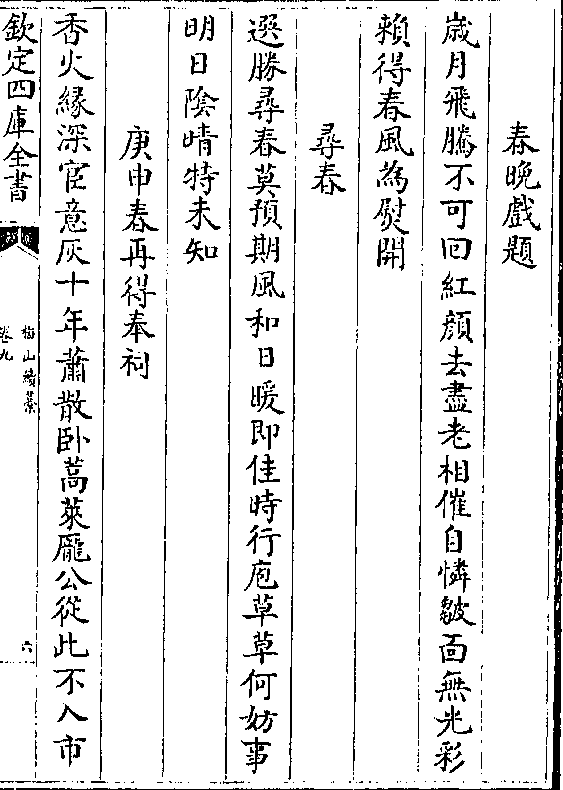 春晚戲題
歳月飛騰不可回紅顔去盡老相催自憐皺面無光彩
頼得春風為熨開
尋春
選勝尋春莫預期風和日暖即佳時行庖草草何妨事
明日隂晴特未知
庚申春再得奉祠
香火緣深宦意灰十年蕭散卧蒿萊龎公從此不入市
欽定四庫全書
梅山續藁
卷九
六